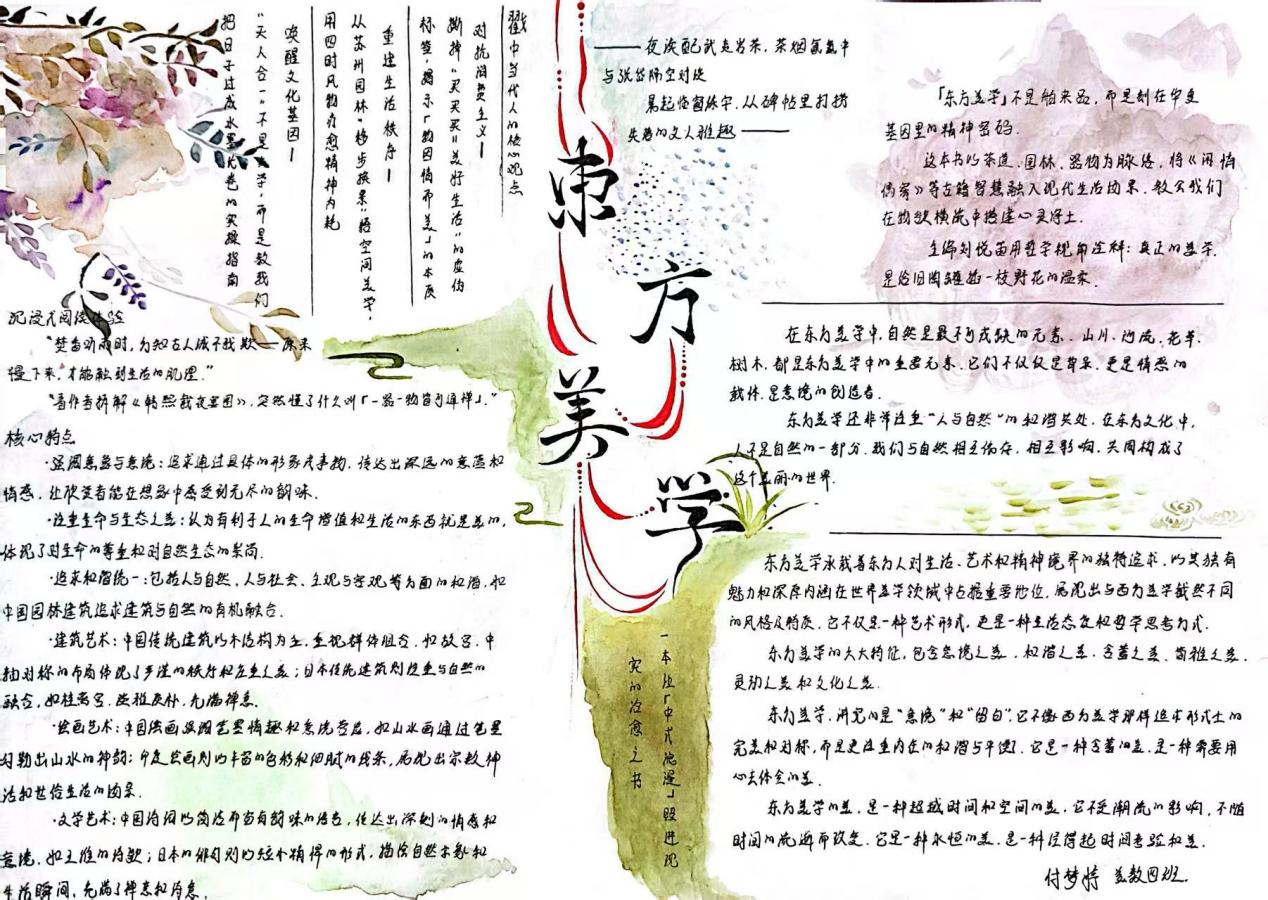 戳中当代人的核心观点
对抗消费主义
撕掉“买买买=美好生活”的虚伪
标签，揭示「物因情而美」的本质
重建生活秩序
从苏州园林“移步换景”悟空间美学，
用四时风物疗愈精神内耗
唤醒文化基因
“天人合一”不是玄学，而是教我们
把日子过成水墨长卷的实操指南
沉浸式阅读体验
“焚香听雨时，方知古人诚不我欺——原来
慢下来，才能触到生活的肌理。”
“看作者拆解《韩熙载夜宴图》，突然懂了什么叫「一器一物皆可通禅」。”
核心特点
·强调意象与意境：追求通过具体的形象或事物，传达出深远的意蕴和
情感，让欣赏者能在想象中感受到无尽的韵味。
·注重生命与生态之美：认为有利于人的生命增值和生活的东西就是美的，
体现了对生命的尊重和对自然生态的崇尚。
·追求和谐统一：包括人与自然、人与社会、主观与客观等方面的和谐，如
中国园林建筑追求建筑与自然的有机融合。
·建筑艺术：中国传统建筑以木结构为主，重视群体组合，如故宫，中
轴对称的布局体现了严谨的秩序和庄重之美；日本传统建筑则注重与自然的
融合，如桂离宫，淡雅质朴，充满禅意。
·绘画艺术：中国绘画强调笔墨情趣和意境营造，如山水画通过笔墨
勾勒出山水的神韵；印度绘画则以丰富的色彩和细腻的线条，展现出宗教神
话和世俗生活的图景。
·文学艺术：中国诗词以简洁而富有韵味的语言，传达出深刻的情感和
意境，如王维的诗歌；日本的俳句则以短小精悍的形式，描绘自然景象和
生活瞬间，充满了禅意和诗意。
东方美学
一本让「中式浪漫」照进现
实的治愈之书
——夜读配武夷岩茶，茶烟氤氲中
与张岱隔空对谈
晨起临窗练字，从碑帖里打捞
失落的文人雅趣——
「东方美学」不是舶来品，而是刻在华夏
基因里的精神密码。
这本书以茶道、园林、器物为脉络，将《闲情
偶寄》等古籍智慧融入现代生活图景，教会我们
在物欲横流中搭建心灵净土。
主编刘悦笛用哲学视角诠释：真正的美学，
是给旧陶罐插一枝野花的温柔。
在东方美学中，自然是最不可或缺的元素，山川、河流、花草、
树木，都是东方美学中的重要元素。它们不仅仅是背景，更是情感的
载体，是意境的创造者。
东方美学还非常注重“人与自然”的和谐共处，在东方文化中，
人不是自然的一部分，我们与自然相互依存，相互影响，共同构成了
这个美丽的世界。
东方美学承载着东方人对生活、艺术和精神境界的独特追求，以其独有
魅力和深厚内涵在世界美学领域中占据重要地位，展现出与西方美学截然不同
的风格及特质，它不仅是一种艺术形式，更是一种生活态度和哲学思考方式。
东方美学的六大特征，包含意境之美、和谐之美、含蓄之美、简雅之美、
灵动之美和文化之美。
东方美学，讲究的是“意境”和“留白”，它不像西方美学那样追求形式上的
完美和对称，而是更注重内在的和谐与平衡，它是一种含蓄的美，是一种需要用
心去体会的美。
东方美学的美，是一种超越时间和空间的美，它不受潮流的影响，不随
时间的流逝而改变，它是一种永恒的美，是一种经得起时间考验和美。
付梦婷 美教四班.